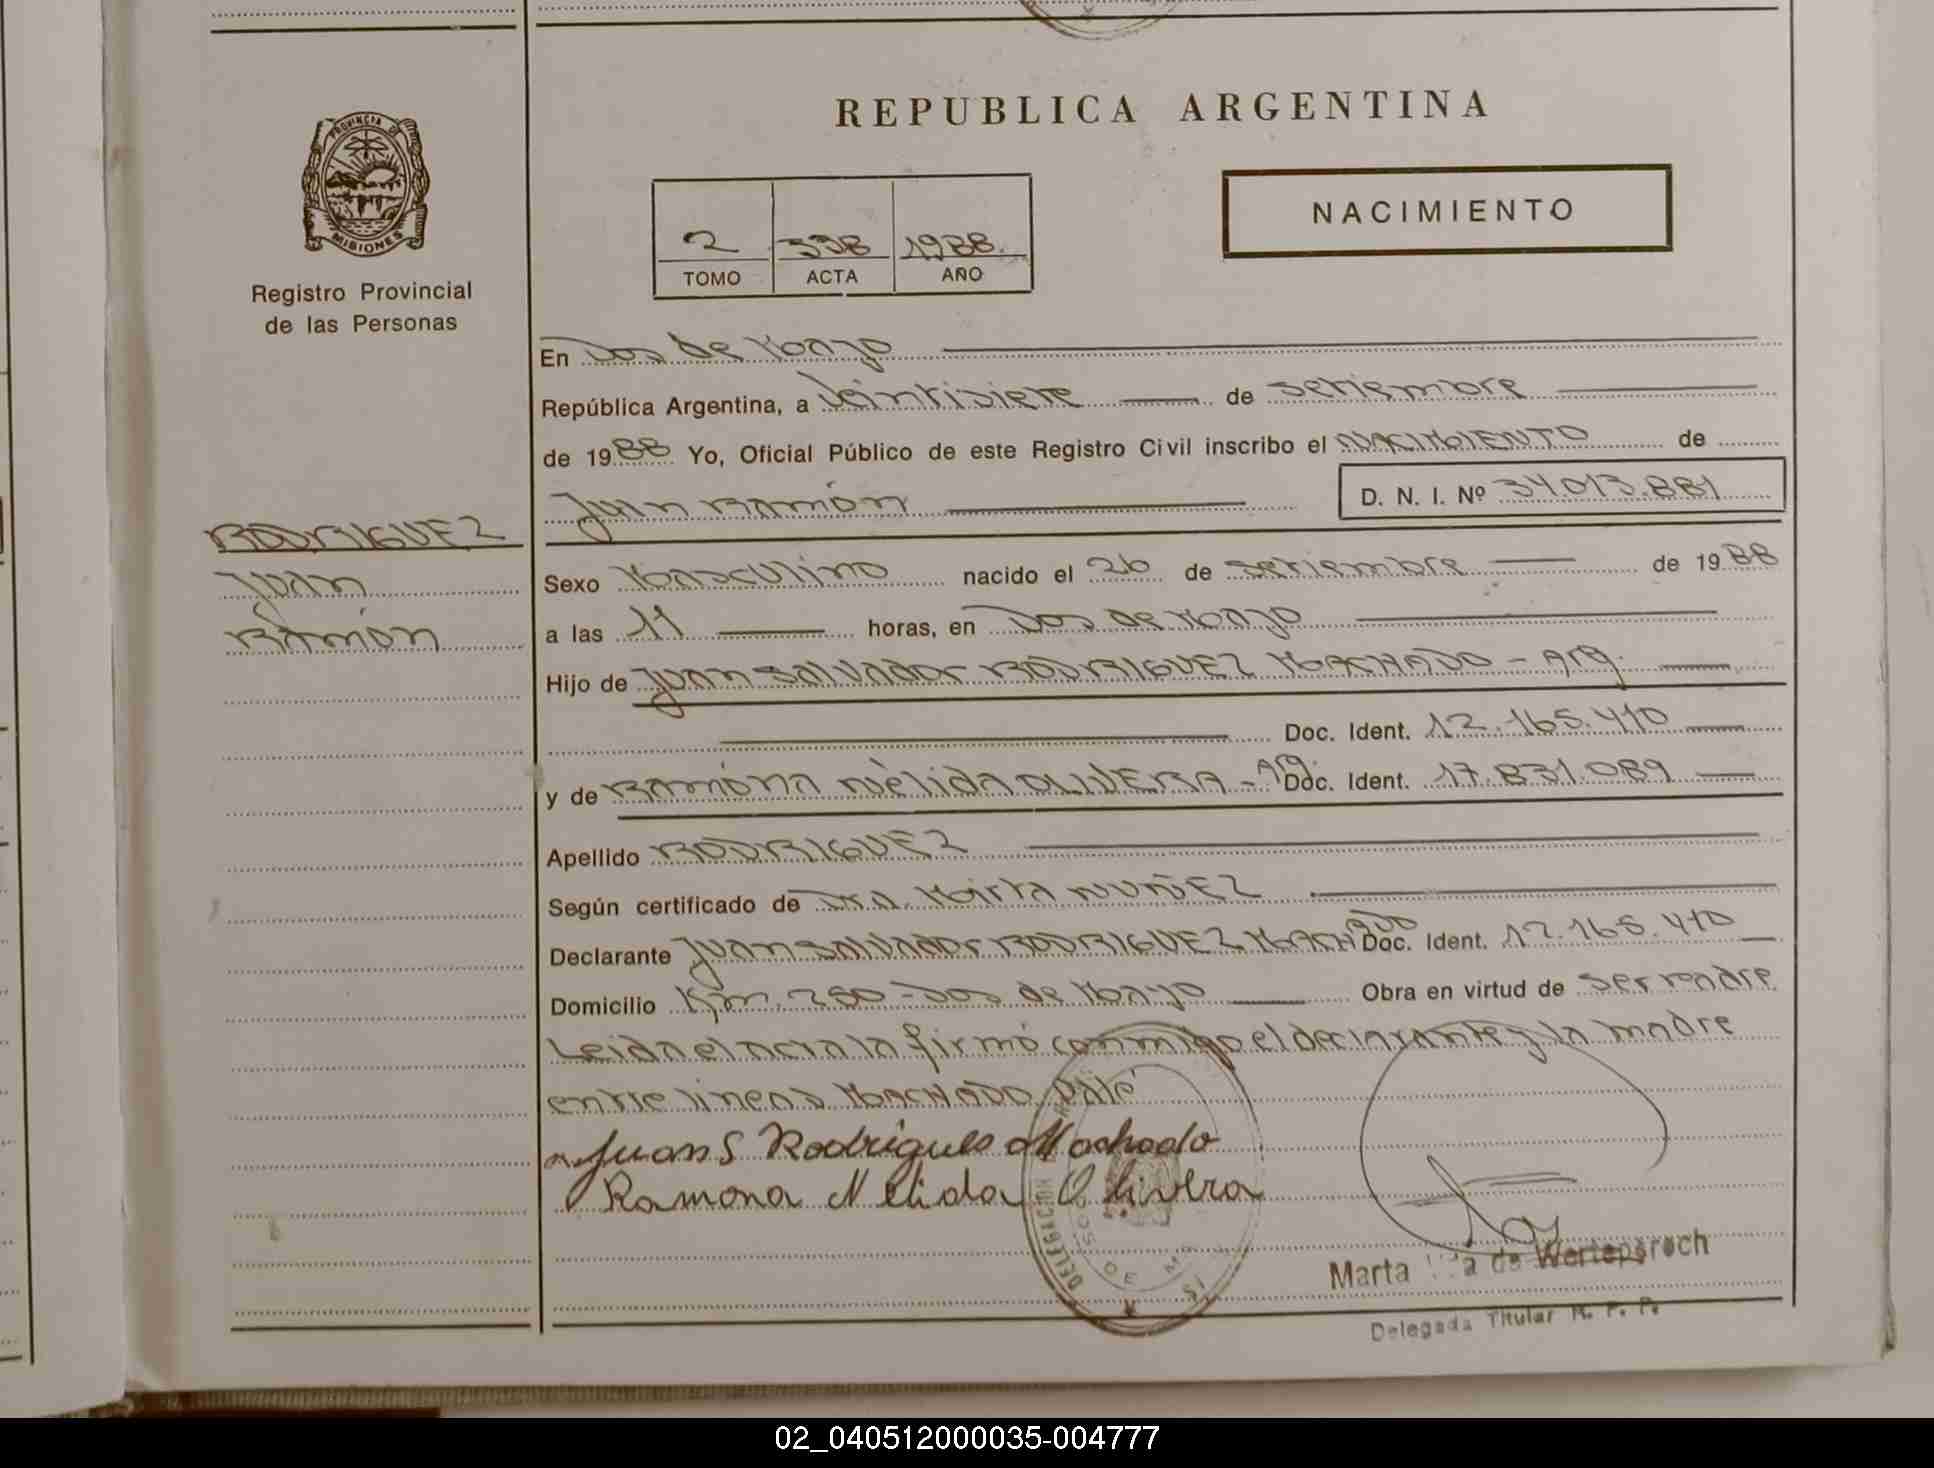 REPUBLICA ARGENTINA
PROVINCIA DE
MISIONES
Registro Provincial
de las Personas
NACIMIENTO
2 398 1988
TOMO ACTA AÑO
En Dos de Mayo
República Argentina, a Veintisiete de setiembre
de 1988 Yo, Oficial Público de este Registro Civil inscribo el NACIMIENTO de
Juan Ramón D. N. I. Nº 34.013.881
RODRIGUEZ
Juan
Ramón
Sexo Masculino nacido el 26 de setiembre de 1988
a las 11 horas, en Dos de Mayo
Hijo de Juan Salvador RODRIGUEZ MACHADO - Arg.
Doc. Ident. 12.165.410
y de Ramóna Nélida OLIVERA - Arg. Doc. Ident. 17.831.089
Apellido RODRIGUEZ
Según certificado de Dra. Mirta NUÑEZ
Declarante Juan Salvador RODRIGUEZ MACHADO Doc. Ident. 12.165.410
Domicilio Km. 250 - Dos de Mayo Obra en virtud de ser padre
Leida el acta la firmó conmigo el declarante y la madre
entre lineas MACHADO Vale
Juan S Rodrigues Machado
Ramona Nelida Olivera
DELEGACION
DOS DE MAYO
Marta de
Delegada Titular R. P. P.
02_040512000035-004777